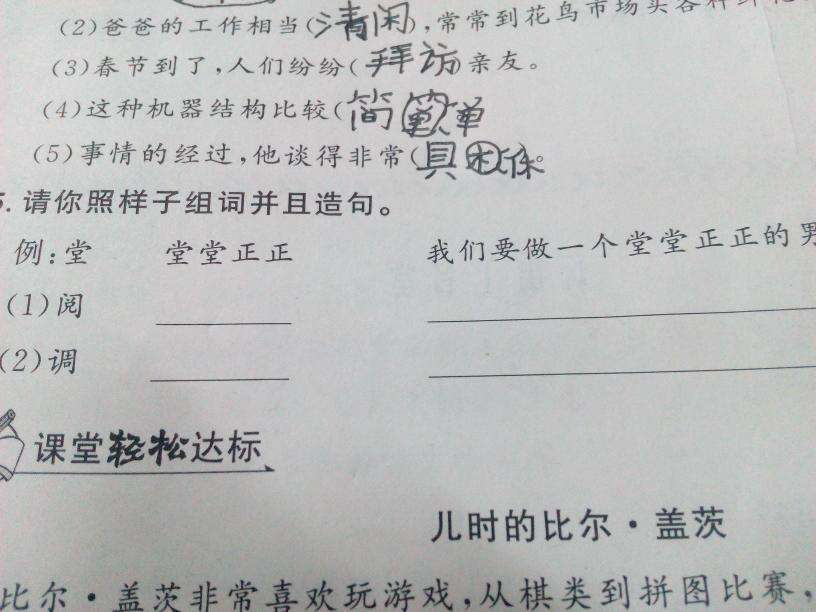 (2)爸爸的工作相当(清闲),常常到花鸟市场买各种
(3)春节到了,人们纷纷(拜访)亲友。
(4)这种机器结构比较(简单
(5)事情的经过,他谈得非常(具体。
5.请你照样子组词并且造句。
例:堂 堂堂正正 我们要做一个堂堂正正的男
(1)阅
(2)调
课堂轻松达标
儿时的比尔·盖茨
比尔·盖茨非常喜欢玩游戏,从棋类到拼图比赛,